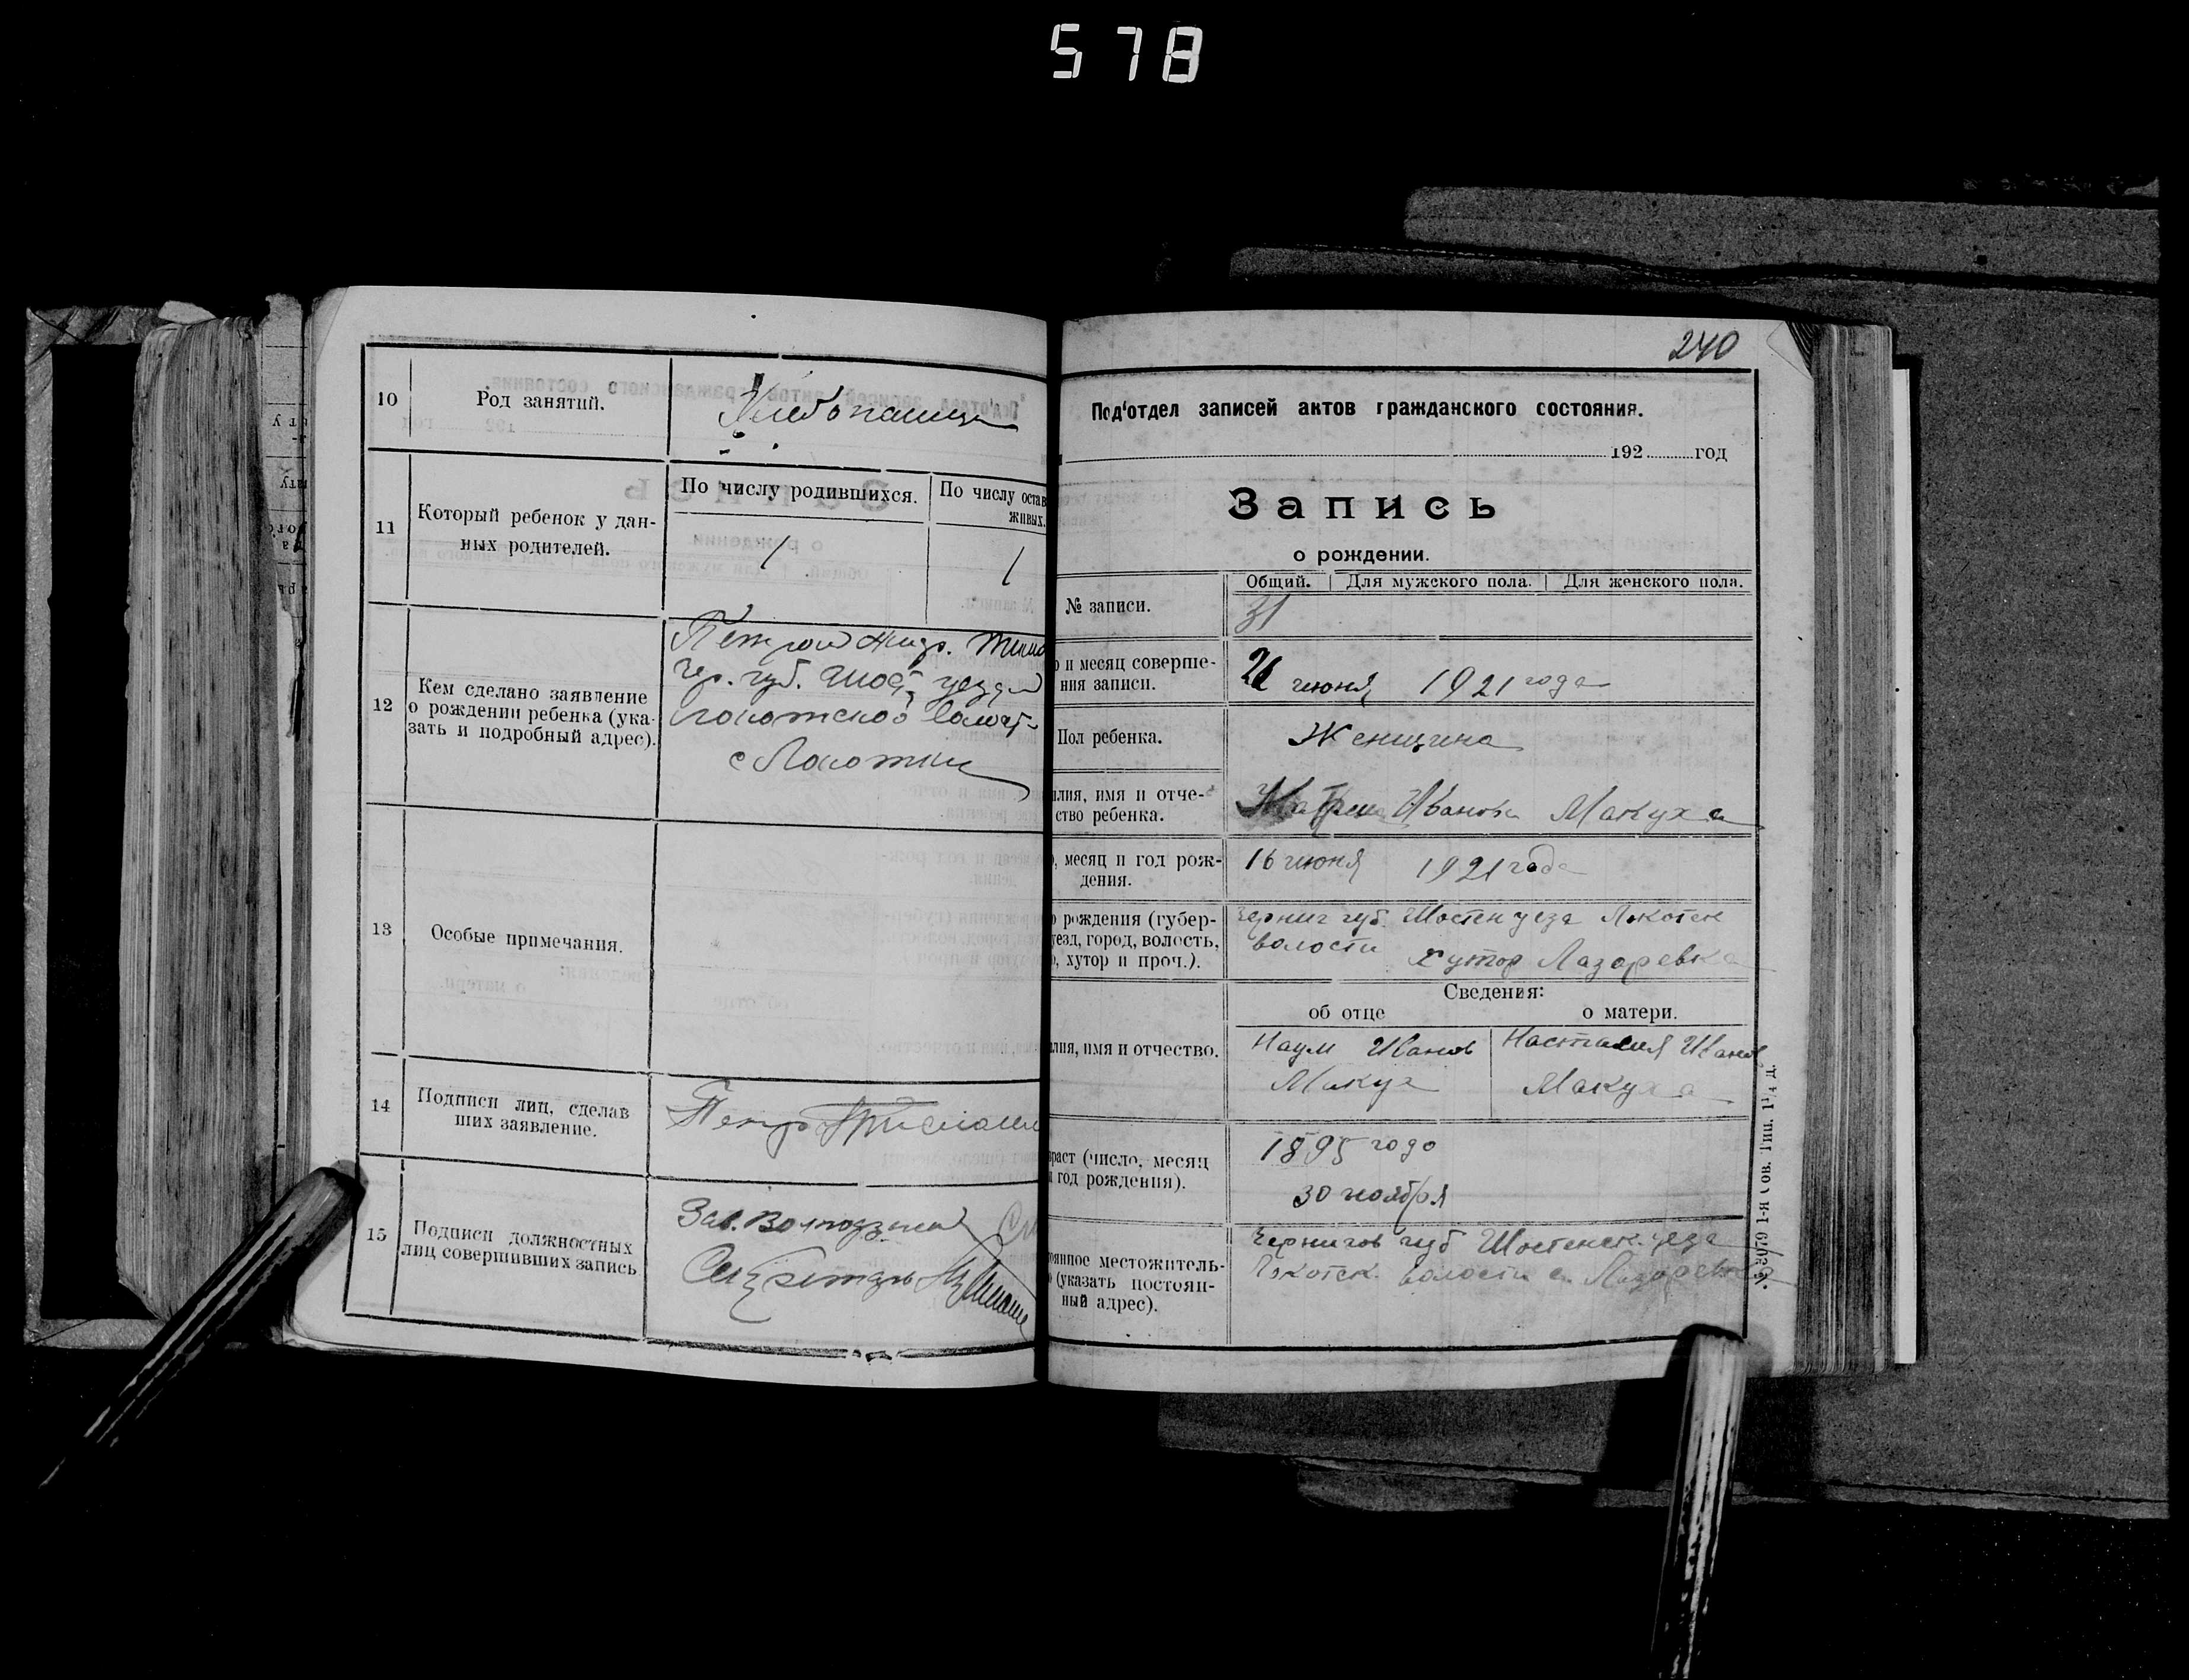 578
10
Род занятий.
Хлебопашец
11
Который ребенок у дан-
ных родителей.
По числу родившихся.
По числу остав
живых.
1
1
12
Кем сделано заявление
о рождении ребенка (ука-
зать и подробный адрес).
Чер. губ. Шост. уезда
Локотской волост
с Локотки
13
Особые примечания.
14
Подписи лиц, сделав
ших заявление.
Петр
15
Подписи должностных
лиц совершивших запись
Зав.
Секретарь
240
Под'отдел записей актов гражданского состояния.
192 год
Запись
о рождении.
Общий. Для мужского пола. Для женского пола.
№ записи.
31
о и месяц соверше-
ния записи.
июня 1921 года
Пол ребенка.
Женщина
илия, имя и отче-
ство ребенка.
Иванова Макуха
о, месяц и год рож-
дения.
16 июня 1921 года
о рождения (губер-
уезд, город, волость,
о, хутор и проч.).
Черниг губ. Шостен уезда Локотск
волости хутор Лазаревка
Сведения:
об отце
о матери.
илия, имя и отчество.
Наум Иванов
Макуха
Настасия Иванов
Макуха
зраст (число, месяц
и год рождения).
1895 года
30 ноября
оянное местожитель-
о (указать постоян-
ный адрес).
Чернигов губ Шостенск. уезда
Локотск. волости с. Лазаревка
№ 3079 1-я Сов. Тип. 1¼ д.